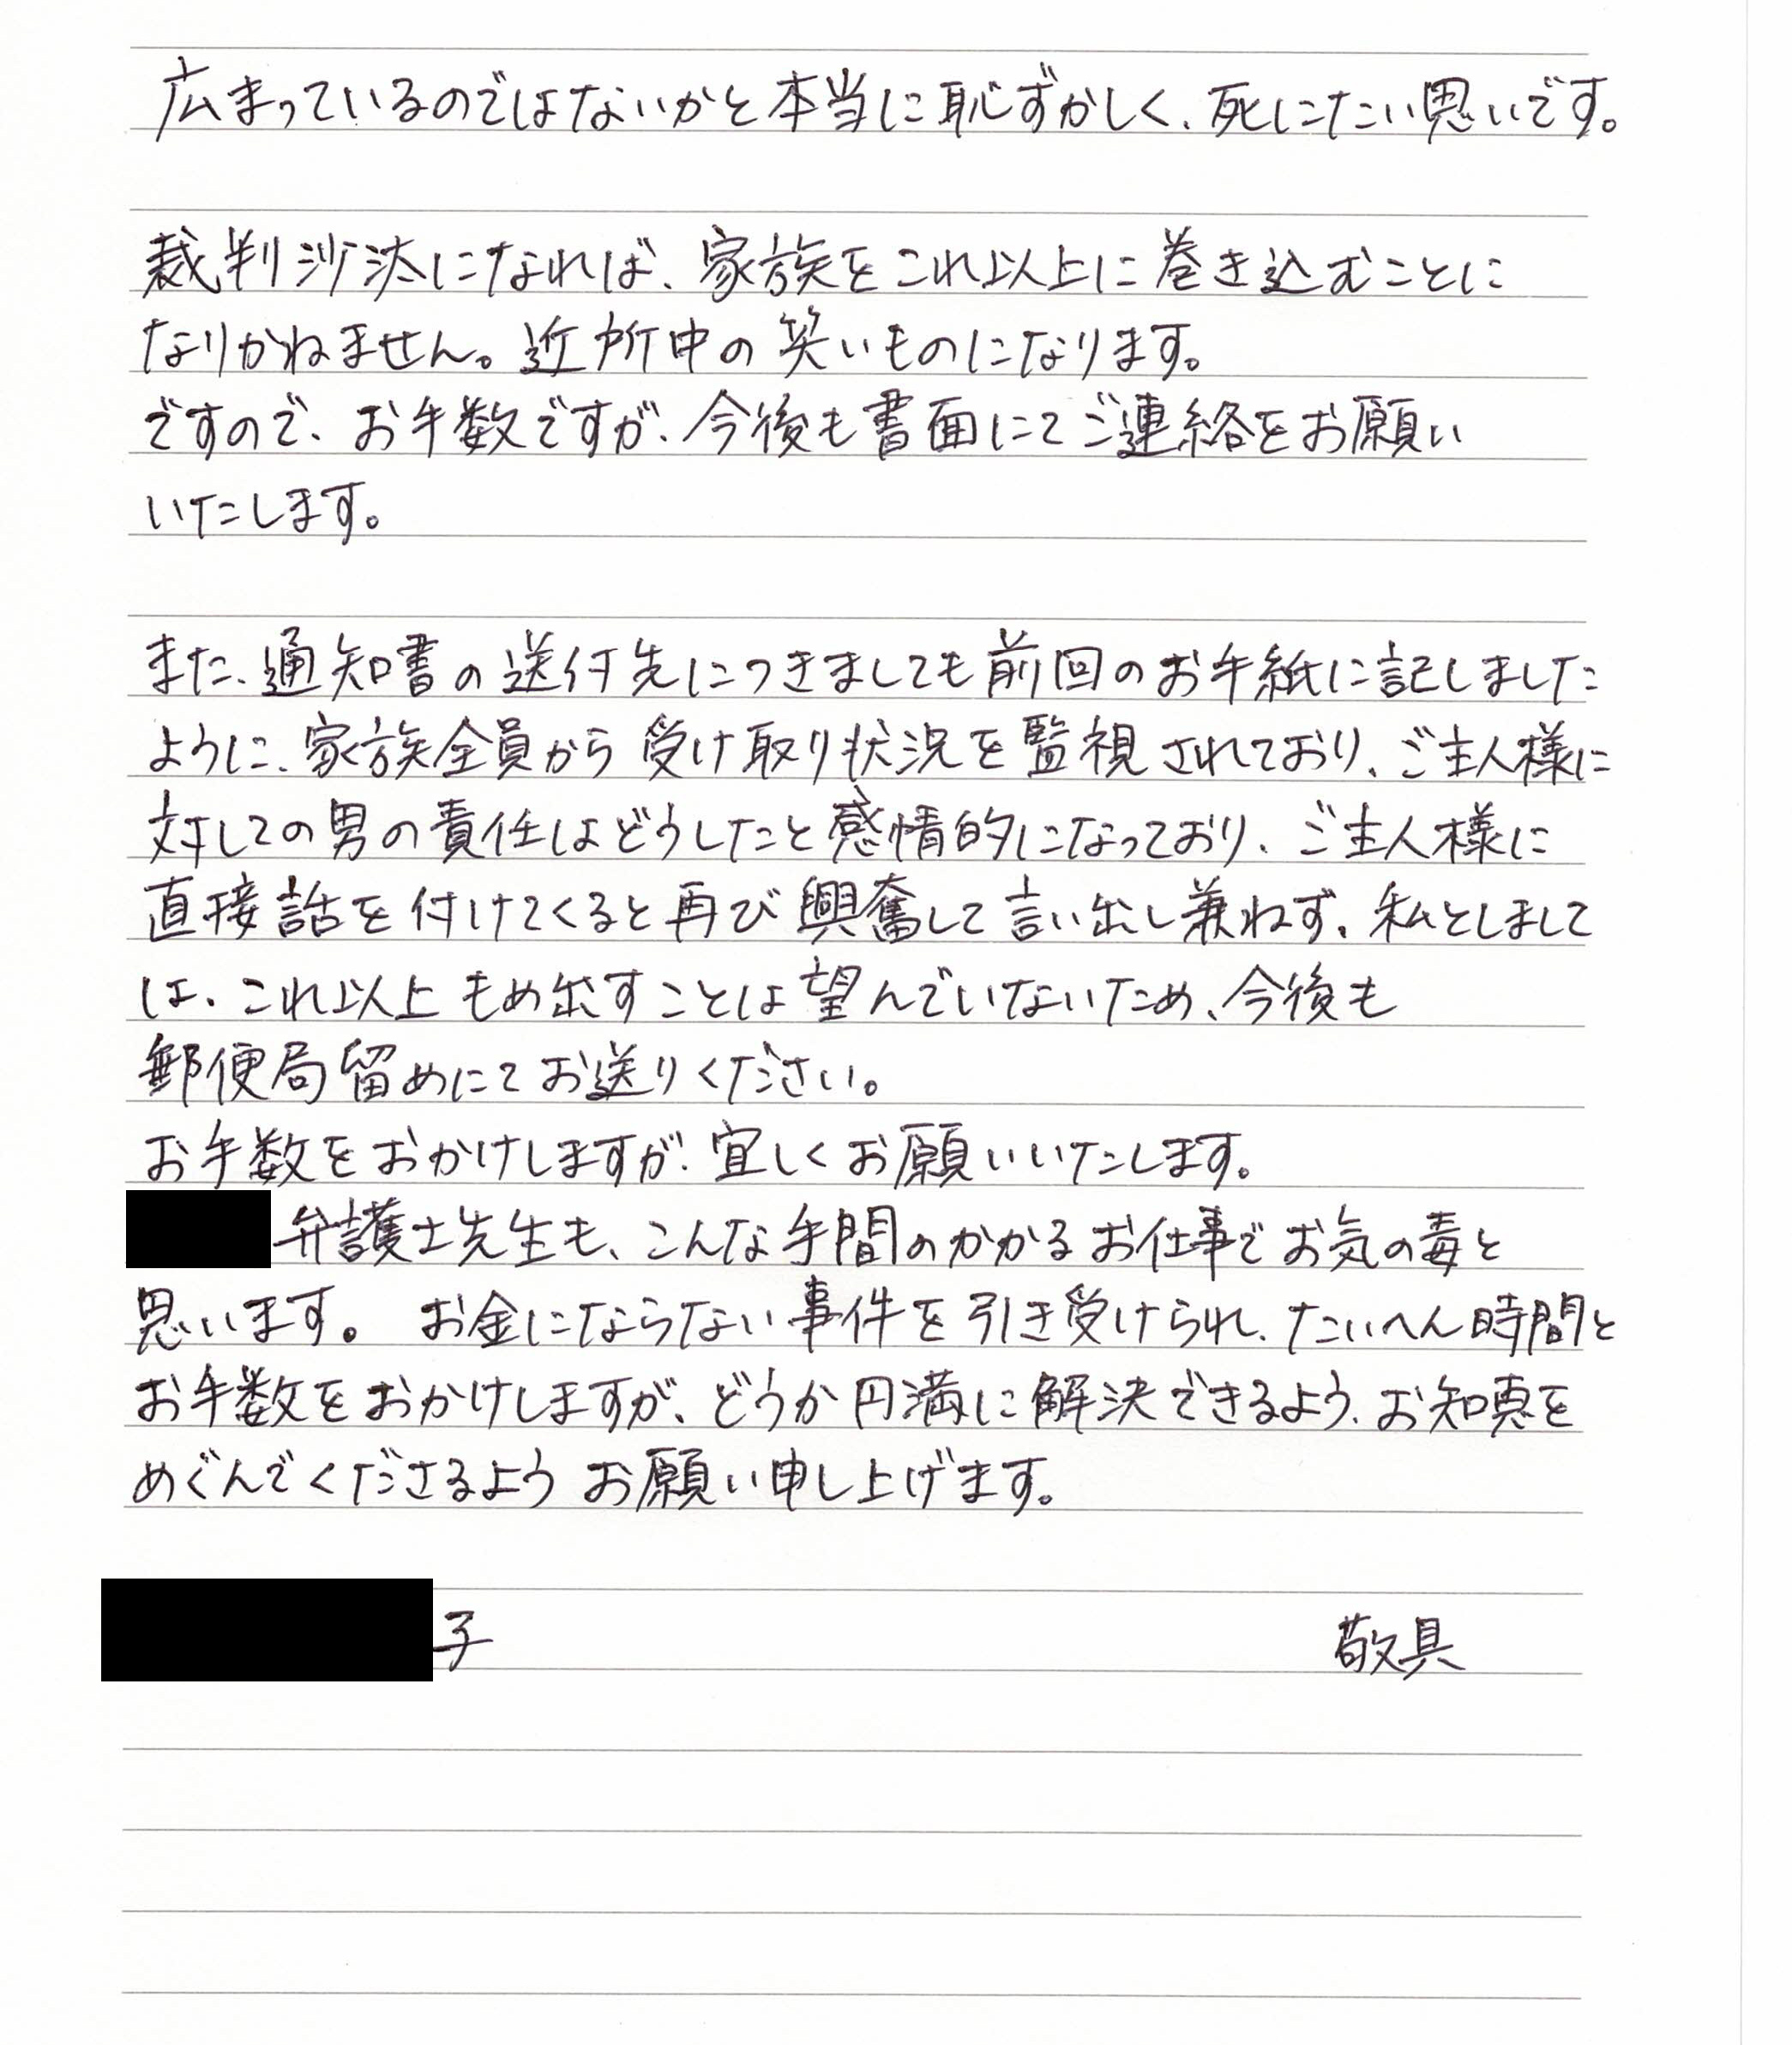 広まっているのではないかと本当に恥ずかしく、死にたい思いです。
裁判沙汰になれば、家族をこれ以上に巻き込むことに
なりかねません。近所中の笑いものになります。
ですので、お手数ですが、今後も書面にてご連絡をお願い
いたします。
また、通知書の送付先につきましても前回のお手紙に記しました
ように、家族全員から受け取り状況を監視されており、ご主人様に
対しての男の責任はどうしたと感情的になっており、ご主人様に
直接話を付けてくると再び興奮して言い出し兼ねず、私としまして
は、これ以上もめ出すことは望んでいないため、今後も
郵便局留めにてお送りください。
お手数をおかけしますが、宜しくお願いいたします。
弁護士先生も、こんな手間のかかるお仕事でお気の毒と
思います。お金にならない事件を引き受けられ、たいへん時間と
お手数をおかけしますが、どうか円満に解決できるよう、お知恵を
めぐんでくださるようお願い申し上げます。
子 敬具